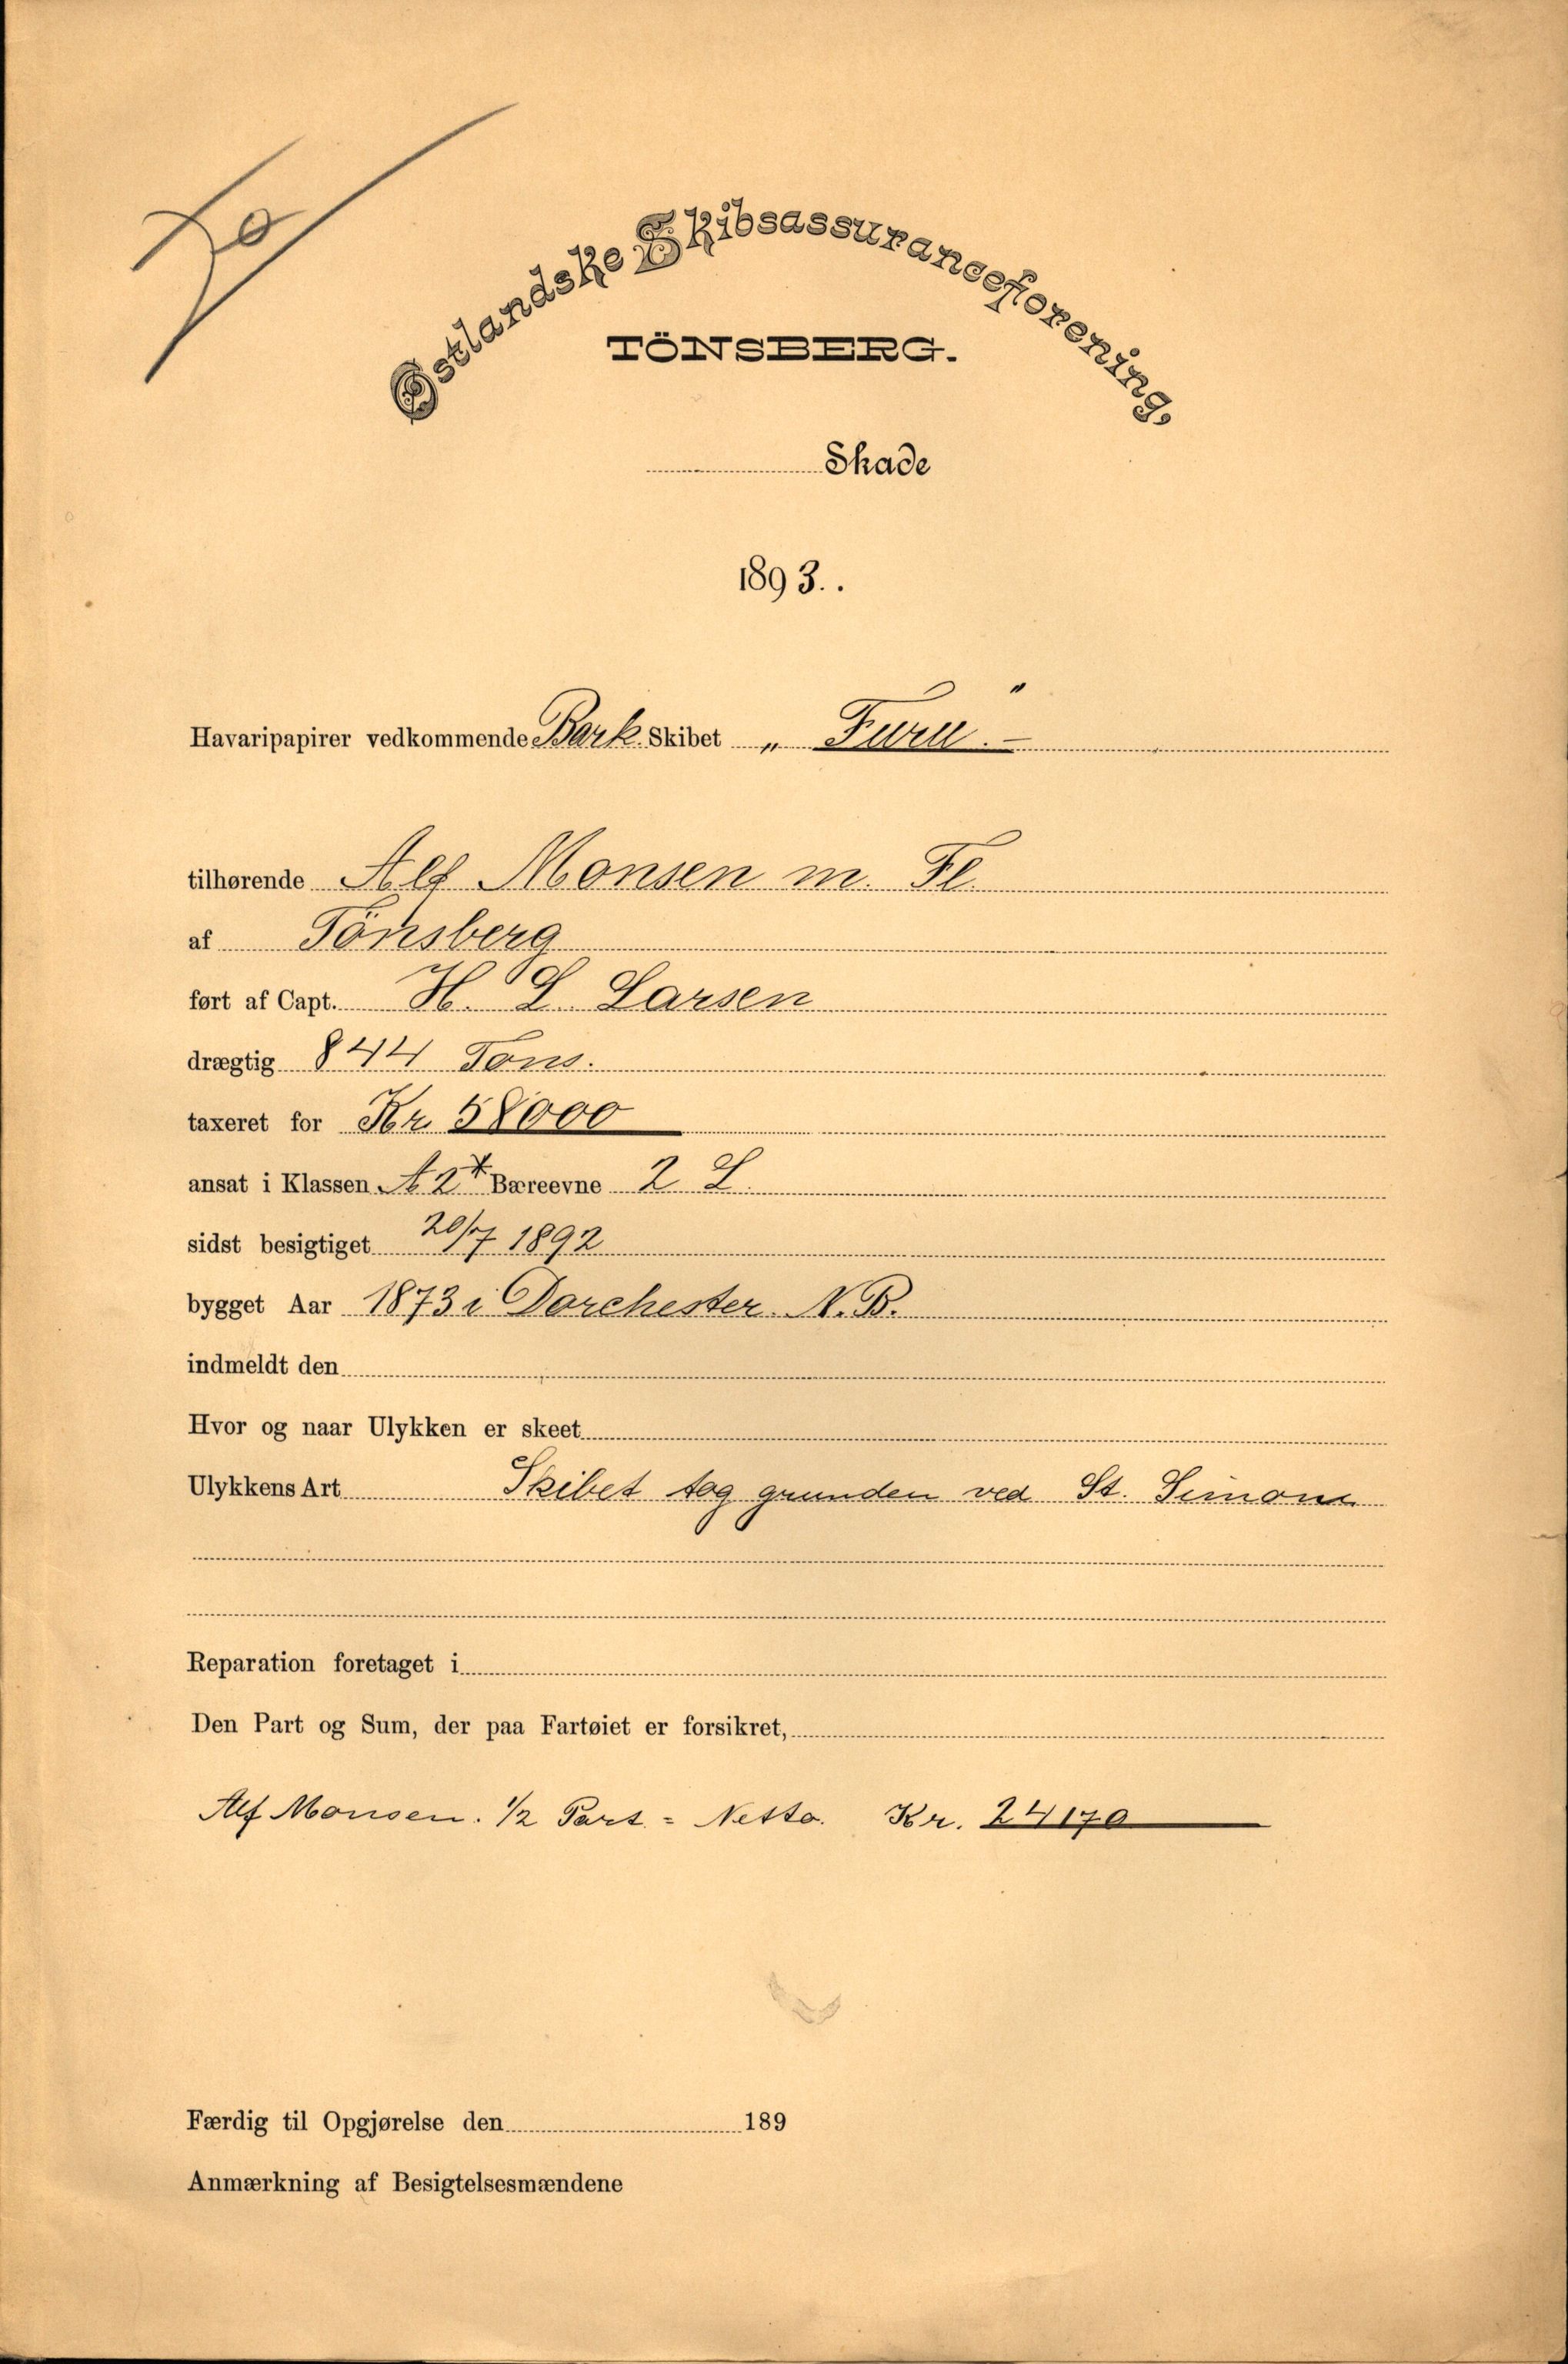 Østlandske Skibsassuranceforening,
TÖNSBERG.
Skade
1893..
Havaripapirer vedkommende Bark Skibet „ Furu "
tilhørende Alf Monsen m. Fl.
af Tönsberg
ført af Capt. H. L. Larsen
drægtig 844 Tons.
taxeret for Kr. 58000
ansat i Klassen A 2 Bæreevne 2 L.
sidst besigtiget 20/7 1892
bygget Aar 1873 i Dorchester N. B.
indmeldt den
Hvor og naar Ulykken er skeet
Ulykkens Art Skibet tog grunden ved St. Simons
Reparation foretaget i
Den Part og Sum, der paa Fartøiet er forsikret,
Alf Monsen. 1/2 Part = Netto. Kr. 24170
Færdig til Opgjørelse den 189
Anmærkning af Besigtelsesmændene